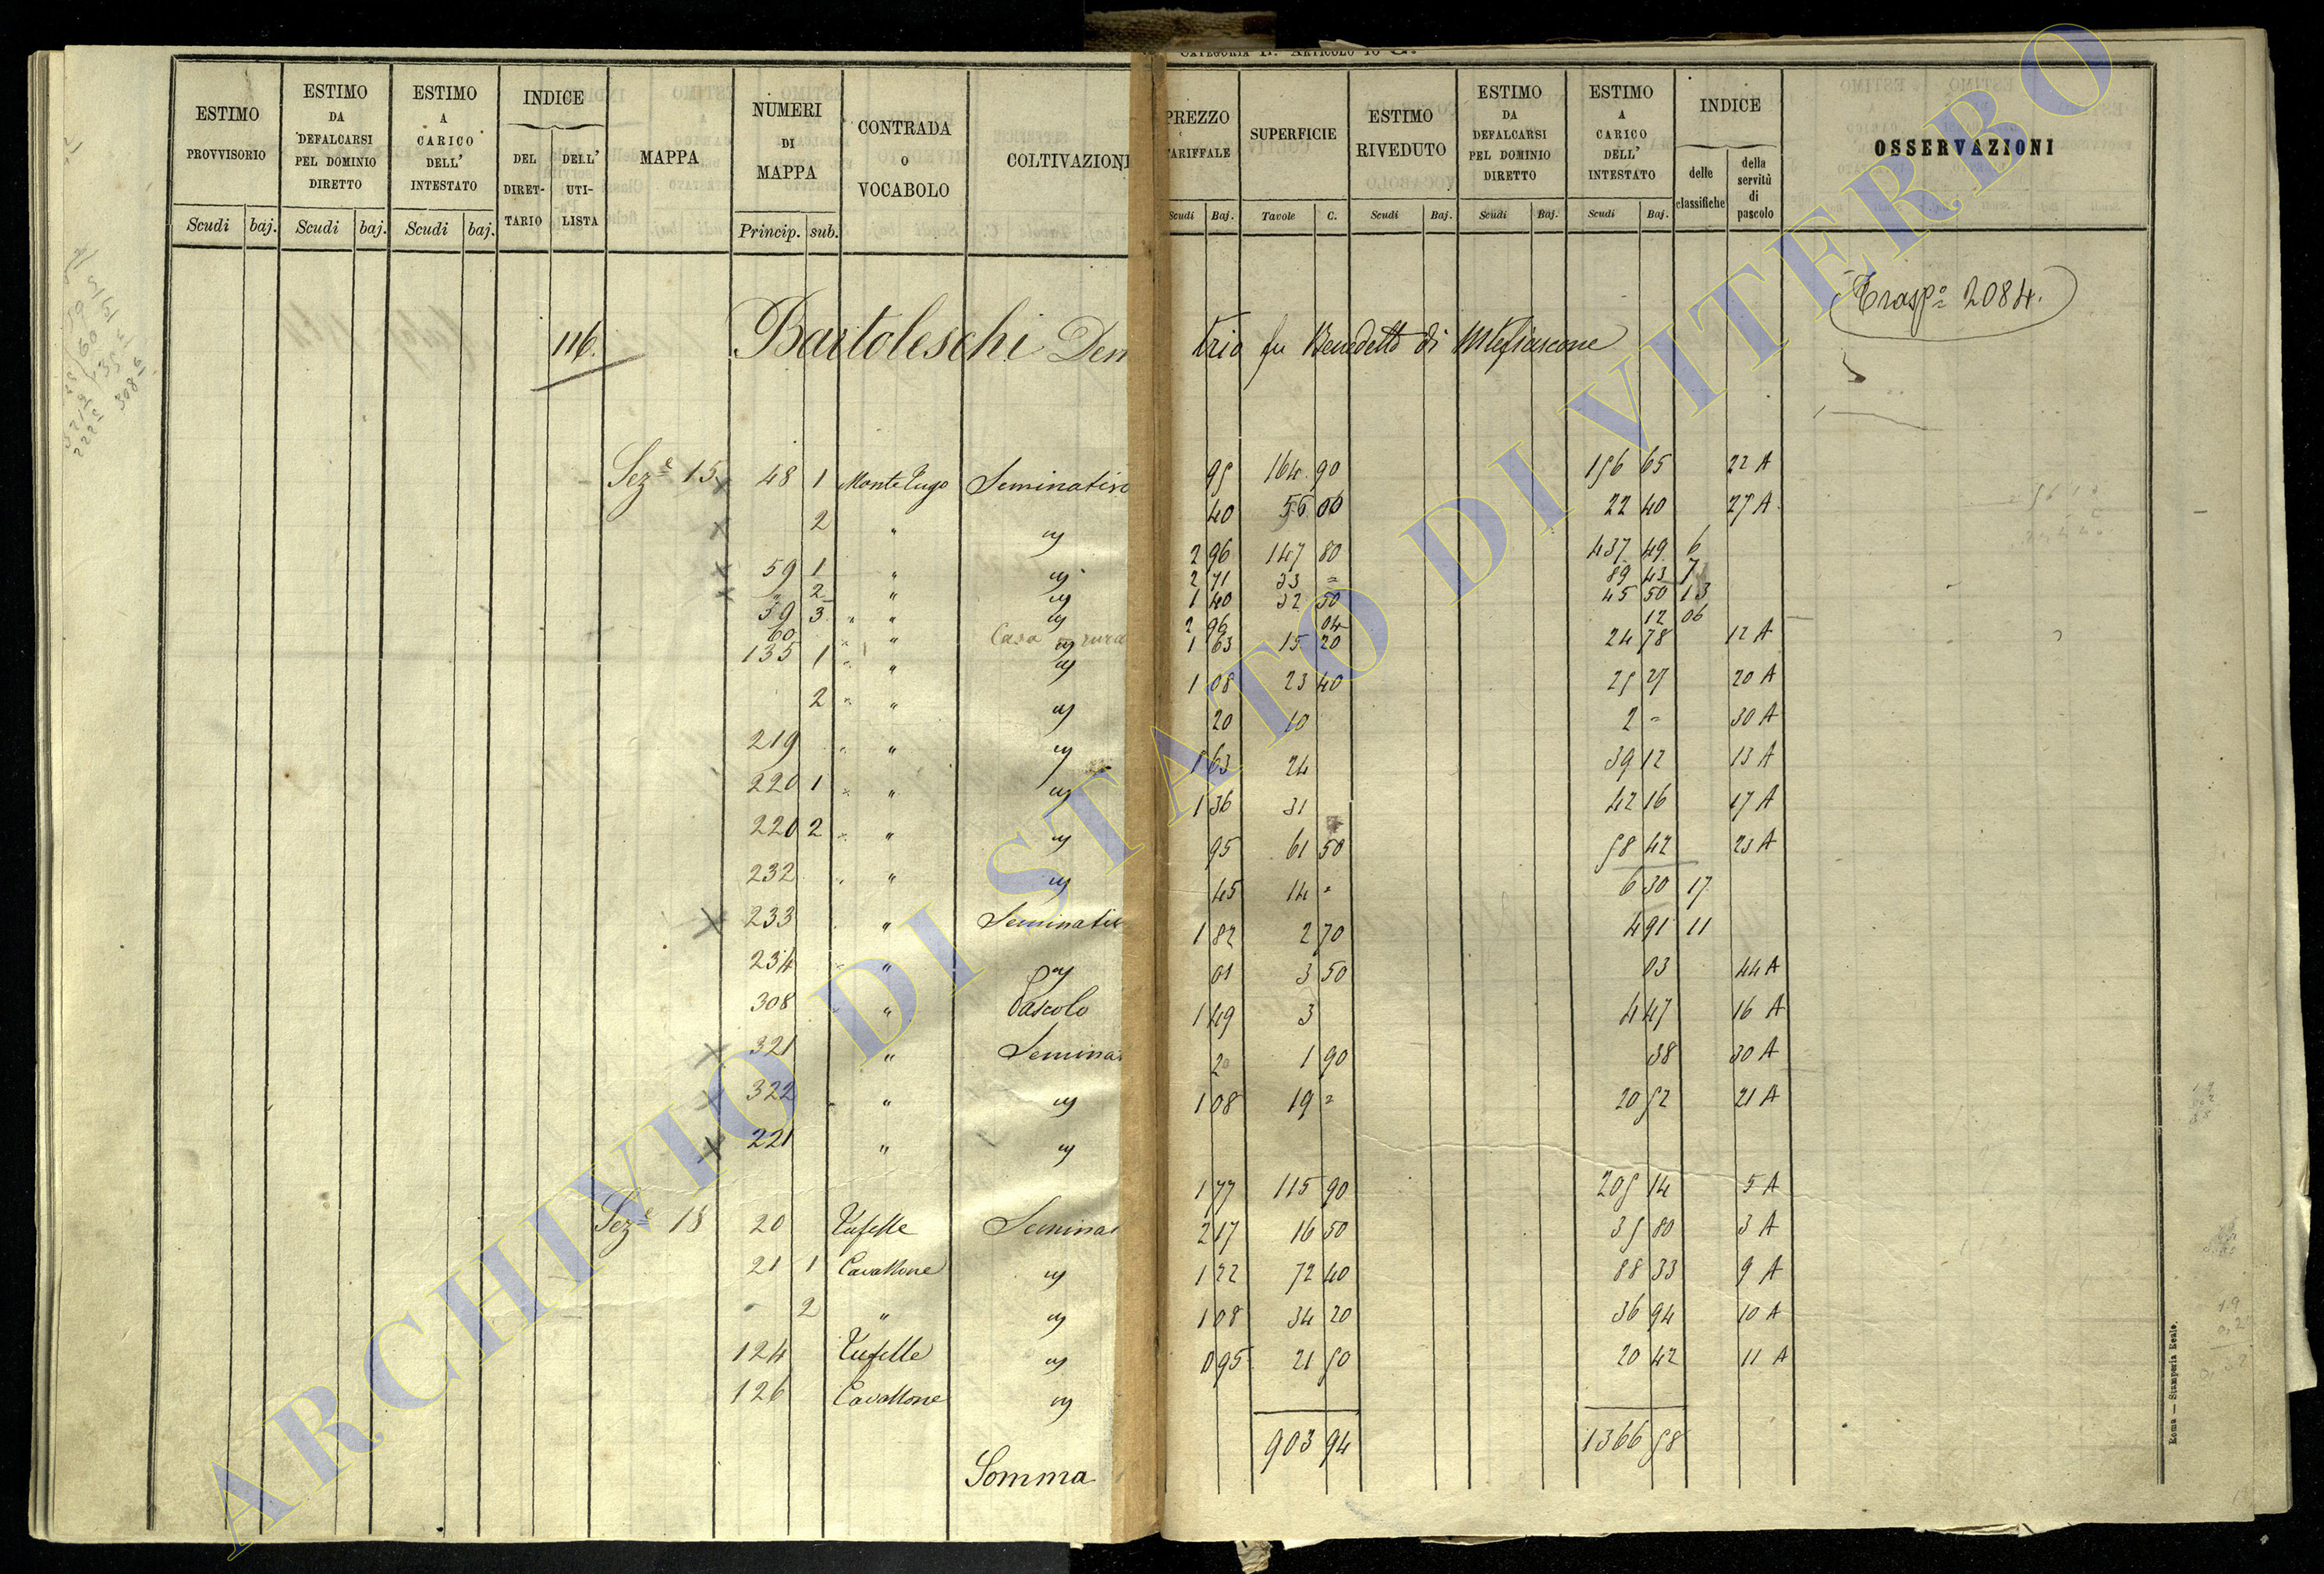 CATEGORIA II. ARTICOLO 10 G.
ESTIMO PROVVISORIO Scudi baj. ESTIMO DA DEFALCARSI PEL DOMINIO DIRETTO Scudi baj. ESTIMO A CARICO DELL' INTESTATO Scudi baj. INDICE DEL DIRETTARIO DELL' UTILISTA MAPPA NUMERI DI MAPPA Princip. sub. CONTRADA O VOCABOLO COLTIVAZIONI PREZZO TARIFFALE Scudi Baj. SUPERFICIE Tavole C. ESTIMO RIVEDUTO Scudi Baj. ESTIMO DA DEFALCARSI PEL DOMINIO DIRETTO Scudi Baj. ESTIMO A CARICO DELL' INTESTATO Scudi Baj. INDICE delle classifiche della servitù di pascolo OSSERVAZIONI
Trasp.º 2084.
116. Bartoleschi Demetrio fu Benedetto di Mtefiascone
Sez.e 15 48 1 Monte Lugo Seminativo 95 164 90 156 65 22 A
2 " " 40 56 00 22 40 27 A
59 1 " " 2 96 147 80 437 49 6
" 2 " " 2 71 33 = 89 43 7
59 3 " " " 1 40 32 50 45 50 13
60 " " Casa rura 2 96 04 12 06
135 1 " " " 1 63 15 20 24 78 12 A
2 " " " 1 08 23 40 25 27 20 A
219 " " " 20 10 2 = 30 A
220 1 " " " 1 63 24 39 12 13 A
220 2 " " " 1 36 31 42 16 17 A
232 " " " 95 61 50 58 42 23 A
233 " Seminativ 45 14 = 6 30 17
234 " " " 1 82 2 70 4 91 11
308 " " Pascolo 01 3 50 03 44 A
321 " Semina 1 49 3 4 47 16 A
322 " " " 20 1 90 38 30 A
221 " " 1 08 19 = 20 52 21 A
Sez.e 18 20 Tufelle Seminat 1 77 115 90 205 14 5 A
21 1 Cavallone " 2 17 16 50 35 80 3 A
" 2 " " 1 22 72 40 88 33 9 A
124 Tufelle " 1 08 34 20 36 94 10 A
126 Cavallone " 0 95 21 50 20 42 11 A
Somma 903 94 1366 58
Roma — Stamperia Reale.
ARCHIVIO DI STATO DI VITERBO